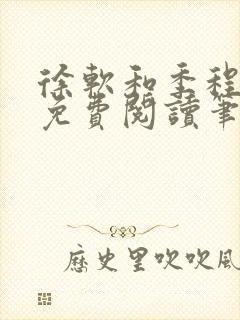 徐軟和季程
免費閱讀筆
歷史里吹吹風